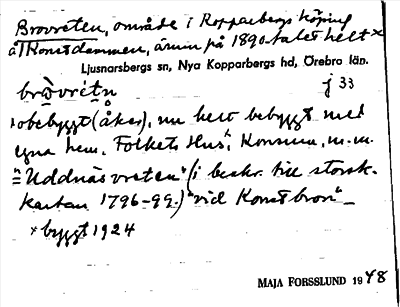 Brovreten, område i Kopparbergs köping
å Konstdammen, ännu på 1890-talet helt ×
Ljusnarsbergs sn, Nya Kopparbergs hd, Örebro län.
brò̀vrètn j 33
obebyggt (åker), nu helt bebyggt med
egna hem, Folkets Hus, Konsum, m.m.
= "Uddnäsvreten" (i beskr. till storsk.
kartan 1796-99.) "vid Konstbron" –
× byggt 1924
MAJA FORSSLUND 1948